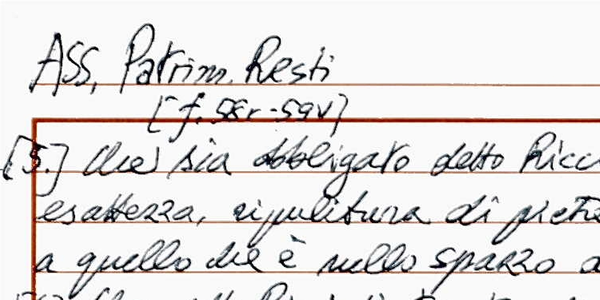 ASS, Patrim. Resti
[f. 58r-59v]
[5.] che sia obbligato detto Ricc
esattezza, ripulitura di pietr
a quello che è nello spazzo a